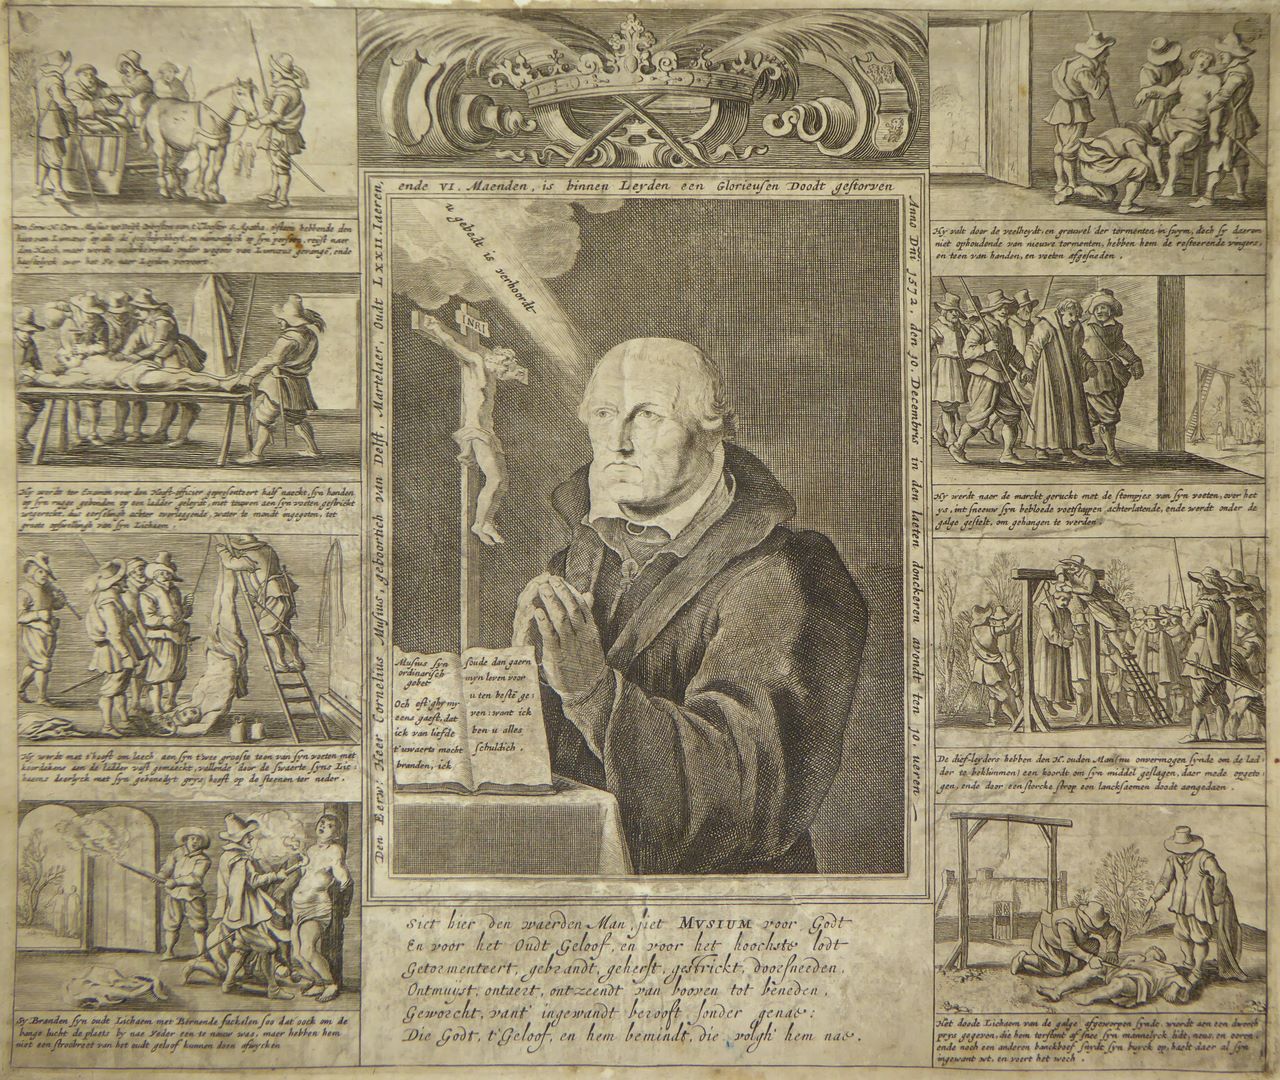 ende VI. Maenden, is binnen Leyden een Glorieusen Doodt gestorven
Anno Dñi 1572. den 10. Decembris in den laeten donckeren avondt ten 10. ueren
Den Eerw. Heer Cornelius Musius, geboortich van Delft, Martelaer, Oudt LXXII. Iaeren,
u gebedt is verhoordt
INRI
Musius syn
ordinarisch
gebet
Och oft ghy my
eens gaeft, dat
ick van liefde
t'uwaerts mocht
branden, ick
soude dan gaern
myn leven voor
u ten bestē ge:
ven: want ick
ben u alles
schuldich.
Siet hier den waerden Man, siet MVSIUM voor Godt
En voor het Oudt Geloof, en voor het hoochste lodt
Getormenteert, gebrandt, geherst, gestrickt, doorsneeden,
Ontmuyst, ontaert, ontzeendt van booven tot beneden,
Geworcht, vant ingewandt berooft sonder genae:
Die Godt, t'Geloof, en hem bemindt, die volgh hem nae.
Den Eerw. H. Corn. Musius tot Delft
van t'Clooster S. Agatha
van Lumaeus op alle
den Haech, maer werdt
naer Leyden vervoert.
Hy werdt ter Examin voor den Hooft-officier gepresenteert half naeckt, syn handen
op syn rugge gebonden op een ladder geleydt, met touwen aen syn voeten gestrickt
water te mondt ingegoten, tot
groote opswellingh van syn Lichaem.
Hy werdt met t'hooft om laech aen syn twee grootste teen van syn voeten met
koordekens aen de ladder vast gemaeckt, vallende door de swaerte syns Lic:
haems deerlyck met syn gebenedyt grys hooft op de steenen ter neder.
Sy Branden syn oudt Lichaem met Bernende fackelen soo dat oock om de
lucht de plaets by nae yeder een te nauw was, maer hebben hem
niet een stroobreet van het oudt geloof kunnen doen afwycken
Hy valt door de veelheydt, en grouwel der tormenten in swym, doch sy daerom
niet ophoudende van nieuwe tormenten, hebben hem de resteerende vingers,
en teen van handen, en voeten afgesneden.
Hy werdt naer de marckt geruckt met de stompjes van syn voeten, over het
ys, int sneeuw syn bebloede voetstappen achterlatende, ende werdt onder de
galge gestelt, om gehangen te werden.
De dief-leyders hebben den H. ouden Man (nu onvermogen synde om de lad
der te beklimmen) een koordt om syn middel geslagen, daer mede opgeto:
gen, ende door een stercke strop een lancksaemen doodt aengedaen.
Het doode Lichaem van de galge afgeworpen synde, werdt aen een
prys gegeven, die hem terstont af snee syn mannelyck lidt, neus, en ooren,
ende noch een anderen banckboef snydt syn buyck op, haelt daer al syn
ingewant wt, en voert het wech.